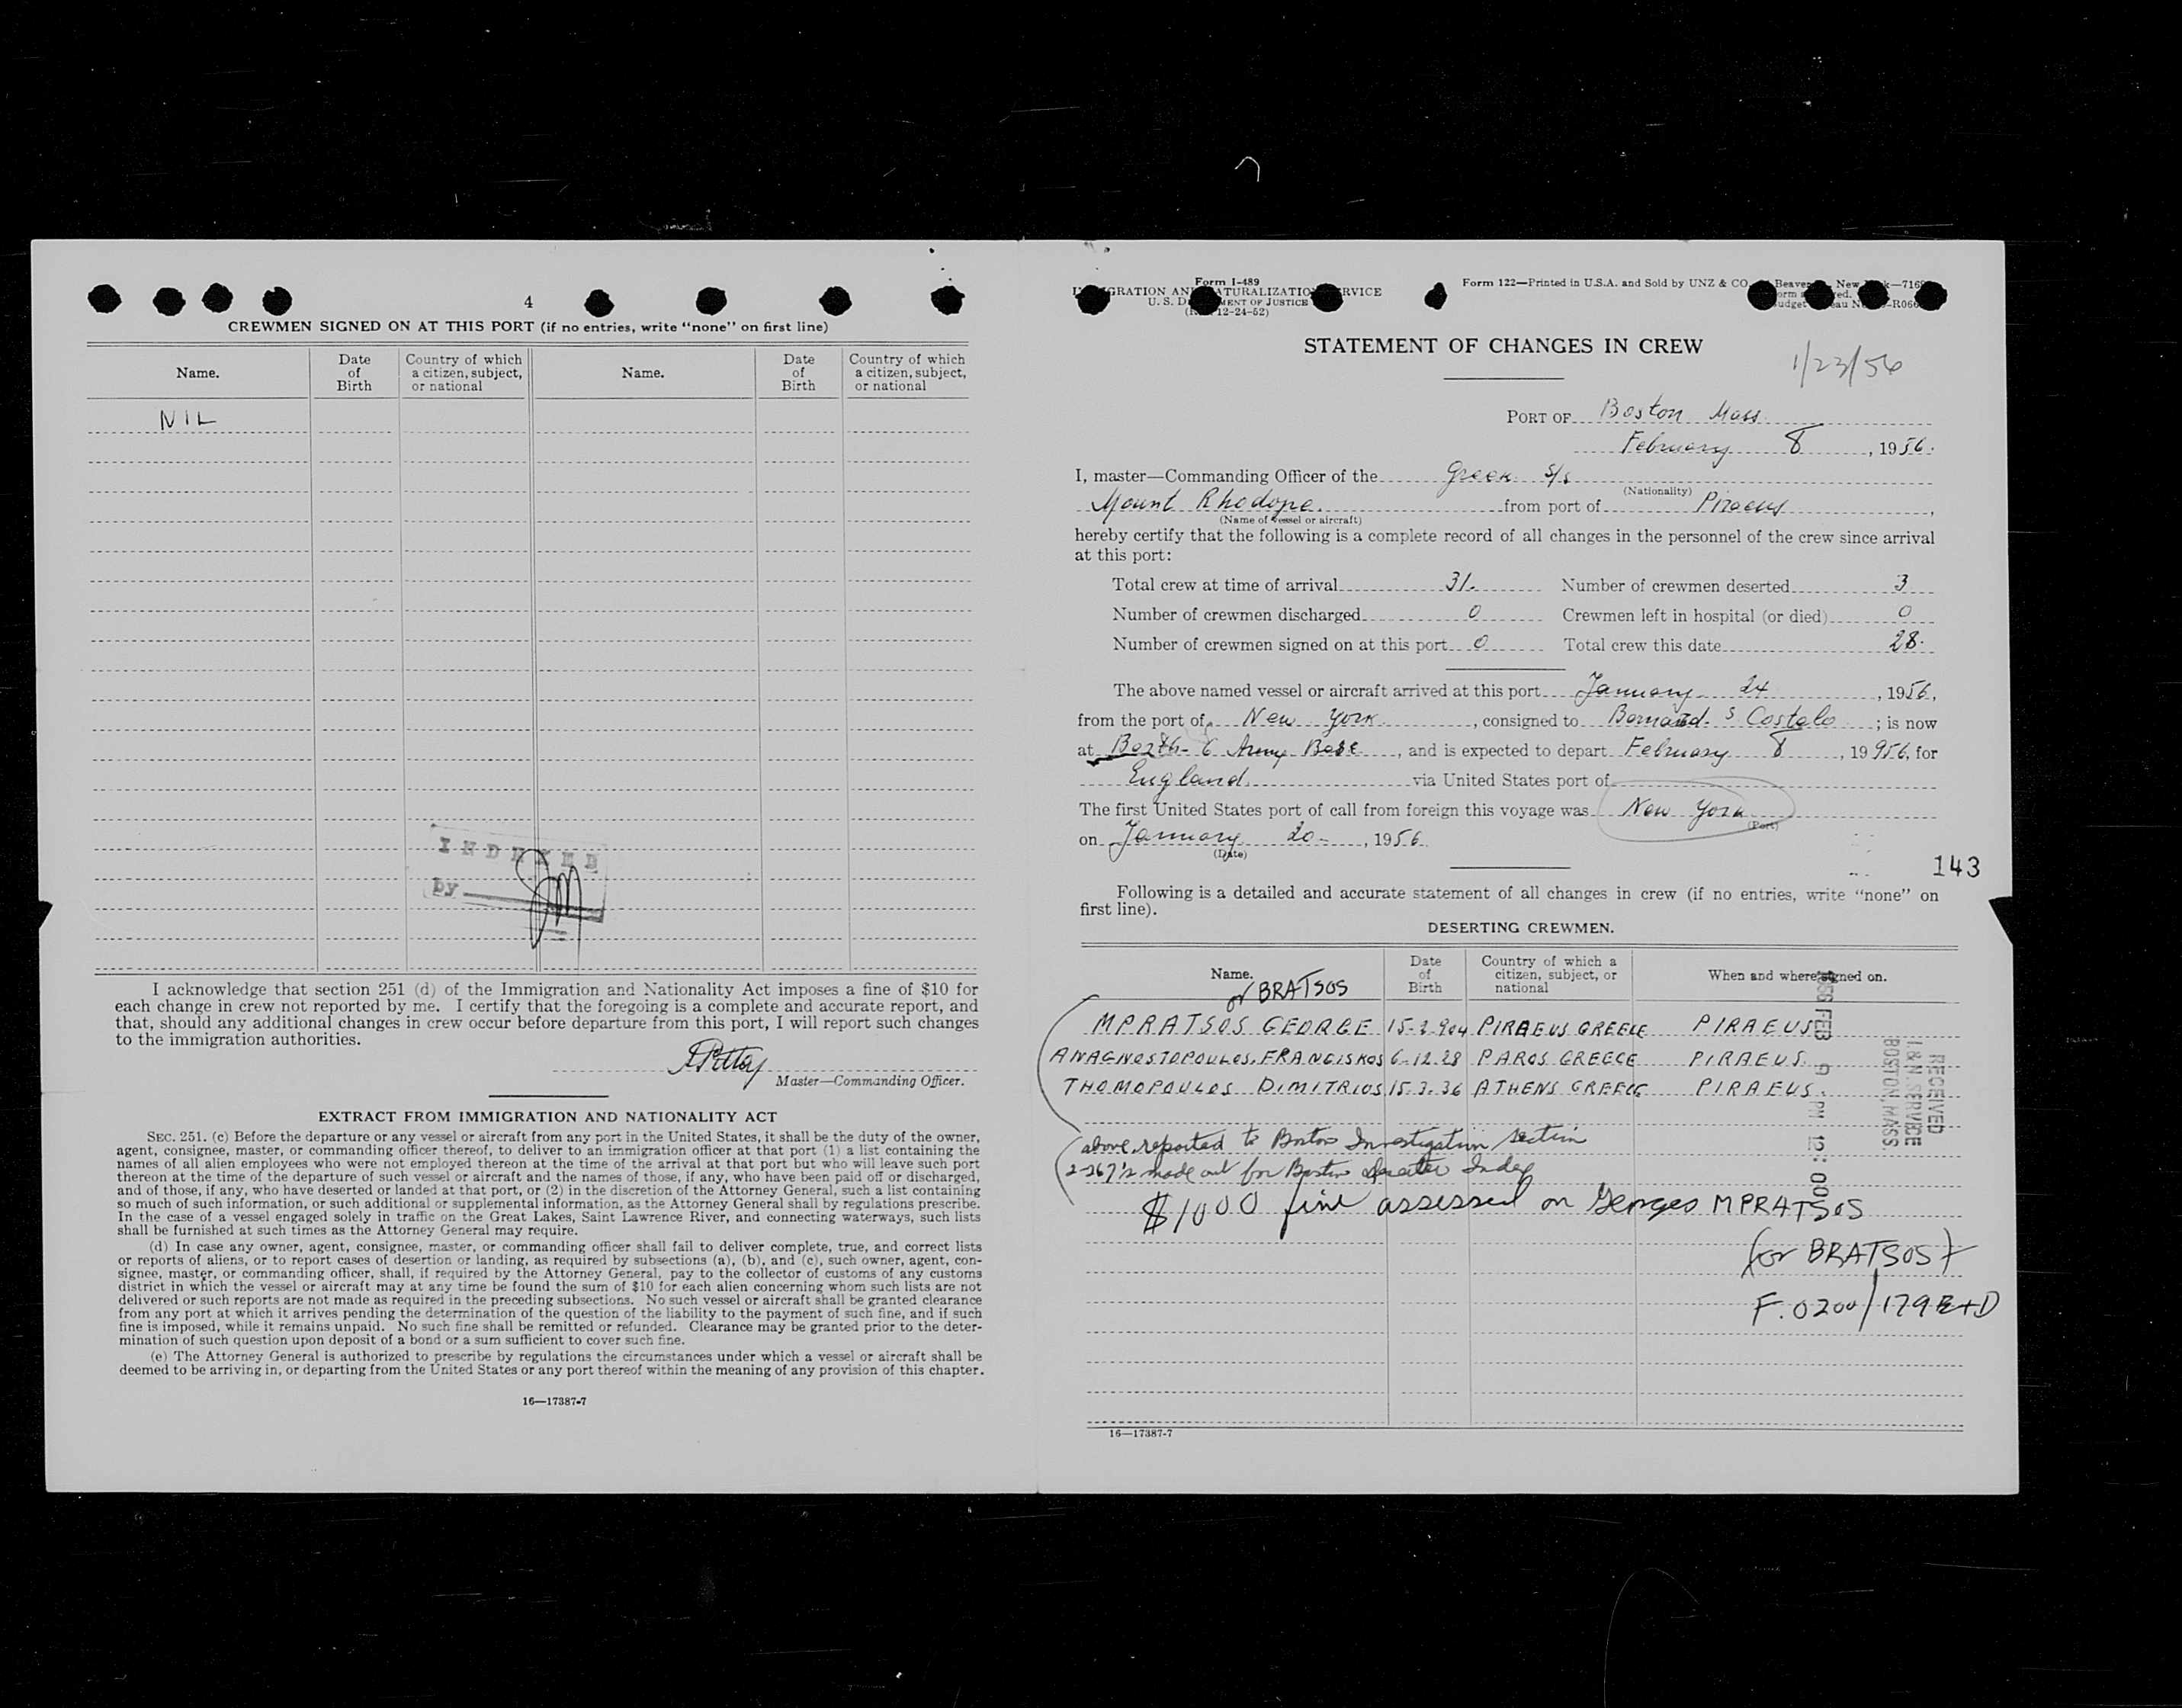 4
CREWMEN SIGNED ON AT THIS PORT (if no entries, write “none” on first line)
Name. Date of Birth Country of which a citizen, subject, or national Name. Date of Birth Country of which a citizen, subject, or national
NIL
INDEXED
by
I acknowledge that section 251 (d) of the Immigration and Nationality Act imposes a fine of $10 for
each change in crew not reported by me. I certify that the foregoing is a complete and accurate report, and
that, should any additional changes in crew occur before departure from this port, I will report such changes
to the immigration authorities.
Master—Commanding Officer.
EXTRACT FROM IMMIGRATION AND NATIONALITY ACT
SEC. 251. (c) Before the departure or any vessel or aircraft from any port in the United States, it shall be the duty of the owner,
agent, consignee, master, or commanding officer thereof, to deliver to an immigration officer at that port (1) a list containing the
names of all alien employees who were not employed thereon at the time of the arrival at that port but who will leave such port
thereon at the time of the departure of such vessel or aircraft and the names of those, if any, who have been paid off or discharged,
and of those, if any, who have deserted or landed at that port, or (2) in the discretion of the Attorney General, such a list containing
so much of such information, or such additional or supplemental information, as the Attorney General shall by regulations prescribe.
In the case of a vessel engaged solely in traffic on the Great Lakes, Saint Lawrence River, and connecting waterways, such lists
shall be furnished at such times as the Attorney General may require.
(d) In case any owner, agent, consignee, master, or commanding officer shall fail to deliver complete, true, and correct lists
or reports of aliens, or to report cases of desertion or landing, as required by subsections (a), (b), and (c), such owner, agent, con-
signee, master, or commanding officer, shall, if required by the Attorney General, pay to the collector of customs of any customs
district in which the vessel or aircraft may at any time be found the sum of $10 for each alien concerning whom such lists are not
delivered or such reports are not made as required in the preceding subsections. No such vessel or aircraft shall be granted clearance
from any port at which it arrives pending the determination of the question of the liability to the payment of such fine, and if such
fine is imposed, while it remains unpaid. No such fine shall be remitted or refunded. Clearance may be granted prior to the deter-
mination of such question upon deposit of a bond or a sum sufficient to cover such fine.
(e) The Attorney General is authorized to prescribe by regulations the circumstances under which a vessel or aircraft shall be
deemed to be arriving in, or departing from the United States or any port thereof within the meaning of any provision of this chapter.
16—17387-7
Form I-489
U. S. JUSTICE
12-24-52)
Form 122—Printed in U.S.A. and Sold by UNZ & CO.
STATEMENT OF CHANGES IN CREW
1/23/56
PORT OF Boston Mass
February 8, 1956.
I, master—Commanding Officer of the Greek S/S
(Nationality)
Mount Rhodope. from port of Piraeus,
(Name of vessel or aircraft)
hereby certify that the following is a complete record of all changes in the personnel of the crew since arrival
at this port:
Total crew at time of arrival 31. Number of crewmen deserted 3
Number of crewmen discharged 0 Crewmen left in hospital (or died) 0
Number of crewmen signed on at this port 0 Total crew this date 28.
The above named vessel or aircraft arrived at this port January 24, 1956,
from the port of New York, consigned to Bernard S Costelo; is now
at Berth 6 Army Base, and is expected to depart February 8, 19 956, for
England via United States port of
The first United States port of call from foreign this voyage was New York
(Port)
on January 20, 1956
(Date)
143
Following is a detailed and accurate statement of all changes in crew (if no entries, write “none” on
first line).
DESERTING CREWMEN.
Name. Date of Birth Country of which a citizen, subject, or national When and where signed on.
or BRATSOS
MPRATSOS GEORGE 15-2-904 PIRAEUS GREECE PIRAEUS
ANAGNOSTOPOULOS. FRANCISKOS 6-12.28 PAROS GREECE PIRAEUS.
THOMOPOULOS DIMITRIOS 15.3.36 ATHENS GREECE PIRAEUS.
1956 FEB 9 PM 12:00
RECEIVED
I. & N. SERVICE
BOSTON, MASS.
above reported to Boston Investigation Section
made out for Boston Deserter Index
$1000 fine assessed on Georges MPRATSOS
(or BRATSOS)
F. 0200/179 E+D
16—17387-7